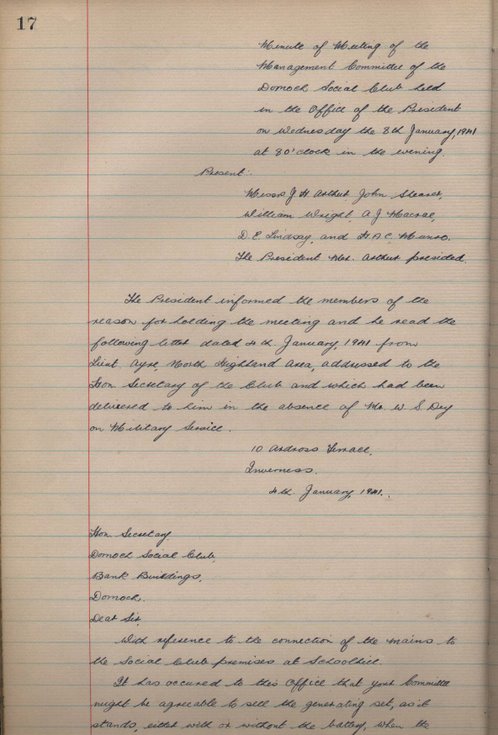 17
Minute of Meeting of the
Management Committee of the
Dornoch Social Club held
in the Office of the President
on Wednesday the 8th January, 1941
at 8 o'clock in the evening.
Present.
Messrs J H Arthur John Shearer,
William Wright, A J Macrae,
D E Lindsay, and H A C Munro.
The President Mr. Arthur presided.
The President informed the members of the
reason for holding the meeting and he read the
following letter dated 4th January, 1941 from
Lieut Ayre, North Highland Area, addressed to the
Hon Secretary of the Club and which had been
delivered to him in the absence of Mr. W. S. Dey
on Military Service.
10 Ardross Terrace,
Inverness.
4th January, 1941.
Hon. Secretary
Dornoch Social Club,
Bank Buildings,
Dornoch.
Dear Sir,
With reference to the connection of the mains to
the Social Club premises at Schoolhill.
It has occured to this Office that your Committee
might be agreeable to sell the generating set, as it
stands, either with or without the battery, when the